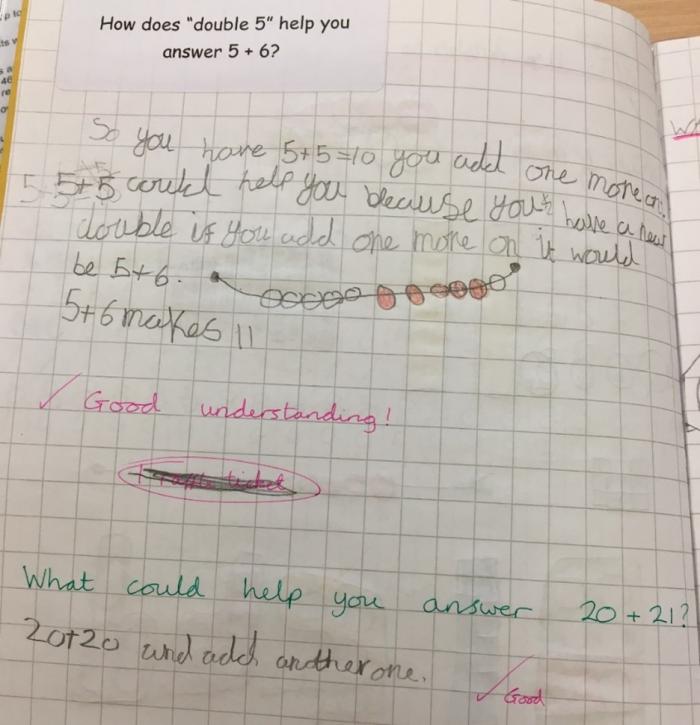 How does "double 5" help you
answer 5 + 6?
So you have 5+5=10 you add one more on.
5+5 could help you because you have a near
double if you add one more on it would
be 5+6.
5+6 makes 11
✓ Good understanding!
ticket
What could help you answer 20 + 21?
20+20 and add another one.
✓ Good